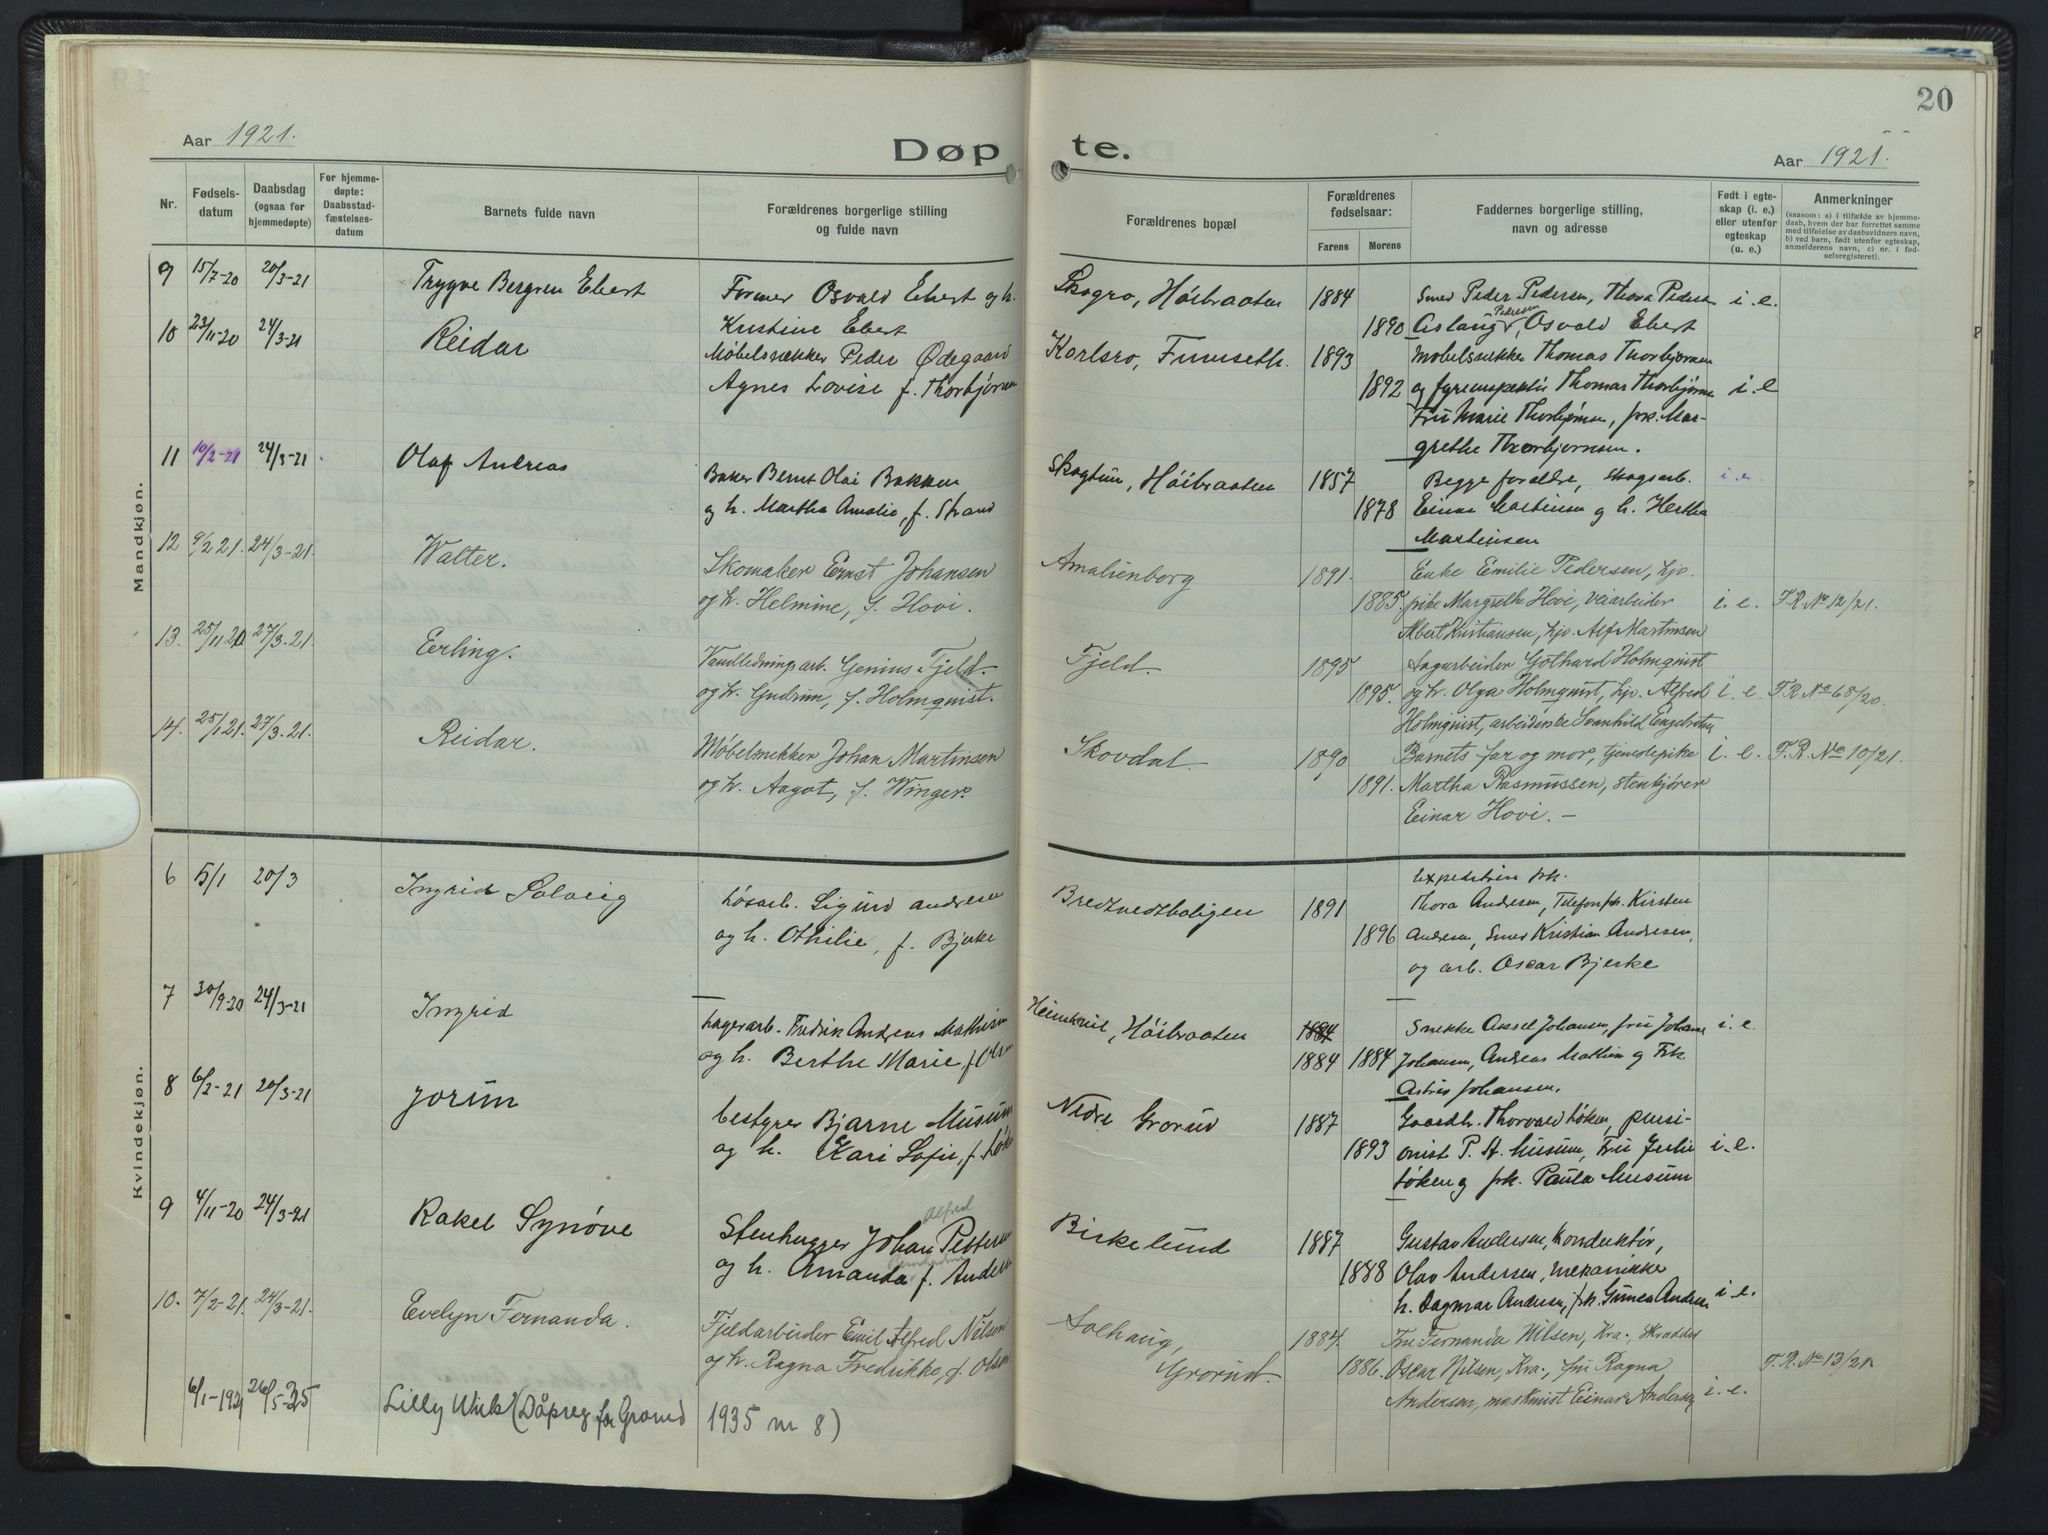 20
Aar 1921.
Døpte.
Aar 1921.
Nr.
Fødsels-
datum
Daabsdag
(ogsaa for
hjemmedøpte)
For hjemme-
døpte:
Daabsstad-
fæstelses-
datum
Barnets fulde navn
Forældrenes borgerlige stilling
og fulde navn
Forældrenes bopæl
Forældrenes
fødselsaar:
Farens
Morens
Faddernes borgerlige stilling,
navn og adresse
Født i egte-
skap (i. e.)
eller utenfor
egteskap
(u. e.)
Anmerkninger
(saasom: a) i tilfælde av hjemme-
daab, hvem der har forrettet samme
med tilføielse av daabsvidners navn,
b) ved barn, født utenfor egteskap,
anmelderens navn, c) nr. i fød-
selsregisteret).
Mandkjøn.
9 15/7-20 20/3-21 Trygve Bergren Ebert
Former Osvald Ebert og h.
Kristine Ebert
Skogro, Höibraaten 1884
1890
Smed Peder Pedersen, Thora Peders i. e.
Pedersen
Aslaug, Osvald Ebert
10 23/11-20 24/3-21 Reidar
Møbelsnekker Peder Ødegaard
Agnes Lovise f. Thorbjörnsen
Karlsro, Furuseth. 1893
1892
Møbelsnekker Thomas Thorbjörnsen
og fyrinspektör Thomas Thorbjörns i. e
Fru Marie Thorbjörnsen, frk. Mar-
grethe Thorbjörnsen.
11 10/2-21 24/3-21 Olaf Andreas
Baker Bernt Olai Bakken
og h. Martha Amalie, f. Strand
Skogtun, Höibraaten 1857
1878
Begge foraldre, Skogsarb. i. e.
Einar Martinsen og h. Hertha
Martinsen
12 9/2 21. 24/3-21. Walter.
Skomaker Ernst Johansen
og h. Helmine, f. Hovi.
Amalienborg 1891.
1885.
Enke Emilie Pedersen, hjv.
pike Margrethe Hovi, veiarbeider i. e. F.R. No 12/21.
Albert Kristiansen, hjv. Alf Martinsen
13. 25/11 20 27/3.21. Erling.
Vandledningsarb. Genius Fjeld.
og h. Gudrun, f. Holmquist.
Fjeld. 1895
1895.
Sagarbeider Gothard Holmquist
og h. Olga Holmquist, hjv. Alfred i. e. F.R. No 68/20.
Holmquist, arbeiderske Svanhild Engebretsen
14. 25/1 21. 27/3.21. Reidar.
Møbelsnekker Johan Martinsen
og h. Aagot, f. Winger.
Skovdal. 1890
1891.
Barnets far og mor, tjenestepike i. e. F.R. No 10/21.
Martha Rasmussen, stenkjører
Einar Hovi. -
Kvindekjøn.
6 5/1 20/3 Ingrid Solveig
Løsarb. Sigurd Andresen
og h. Othilie, f. Bjerke
Bredtvedtboligen 1891
1896
Expeditrise frk.
Thora Andresen, Telefonfrk. Kirsten
Andresen, Smed Kristian Andresen,
og arb. Oscar Bjerke
7 30/9-20 24/3-21 Ingrid
Lagerarb. Fredrik Andreas Mathisen
og h. Berthe Marie f. Olsen
Höibraaten 1884
1884 1884
Snekke Aksel Johansen, fru Johane i. e.
Johansen, Andreas Mathisen og Frk.
Astrid Johansen.
8 6/2-21 20/3-21 Jorun
bestyrer Bjarne Musum
og h. Kari Sofie, f. Løken
Nedre Grorud 1887
1893
Gaardbr. Thorvald Løken, pensi-
onist P. H. Musum, Fru Julie i. e.
Løken og frk. Paula Musum
9 4/11-20 24/3-21 Rakel Synöve
Alfred
Stenhugger Johan Petters
og h. Amanda f. Anders
Birkelund 1887
1888
Gustav Andersen, Konduktör,
Olav Andersen, mekaniker
h. Dagmar Andersen, frk. Gunda Anders i. e.
10. 7/2-21. 24/3-21. Evelyn Fernanda.
Fjeldarbeider Emil Alfred Nilsen
og h. Ragna Fredrikke, f. Olsen
Solhaug,
Grorud. 1884.
1886.
Fru Fernanda Nilsen, Kra., Skrædder
Oscar Nilsen, Kra., fru Ragna F.R. No 13/21
Andersen, maskinist Einar Andersen i. e.
6/1-1921 26/5-35 Lilly (Dåpreg for Grorud 1935 nr 8)